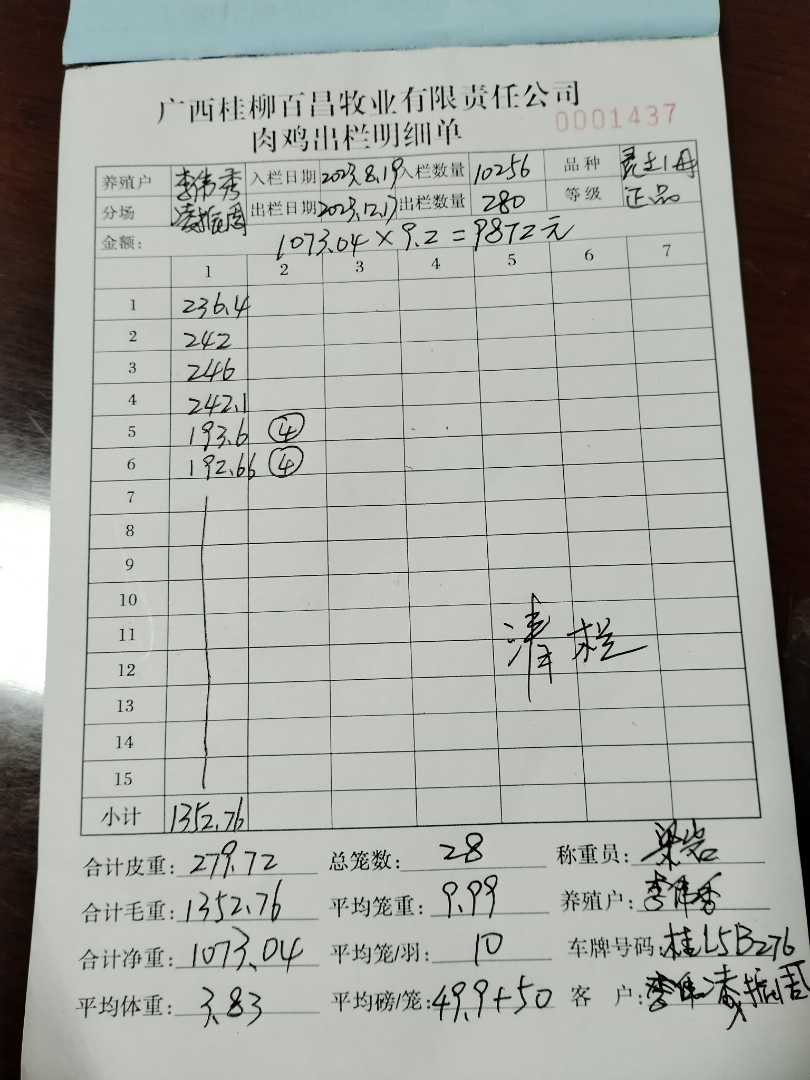 广西桂柳百昌牧业有限责任公司
肉鸡出栏明细单
0001437
养殖户 李伟秀 入栏日期 2023.8.19 入栏数量 10256 品种
分场 凌振周 出栏日期 2023.12.17 出栏数量 280 等级 正品
金额: 1073.04×9.2=9872元
1 2 3 4 5 6 7
1 236.4
2 242
3 246
4 242.1
5 193.6 ④
6 192.66 ④
7
8
9
10
11
清栏
12
13
14
15
小计 1352.76
合计皮重: 279.72 总笼数: 28 称重员: 梁岩
合计毛重: 1352.76 平均笼重: 9.99 养殖户: 李伟秀
合计净重: 1073.04 平均笼/羽: 10 车牌号码: 桂L5B276
平均体重: 3.83 平均磅/笼: 49.9+50 客户: 凌振周